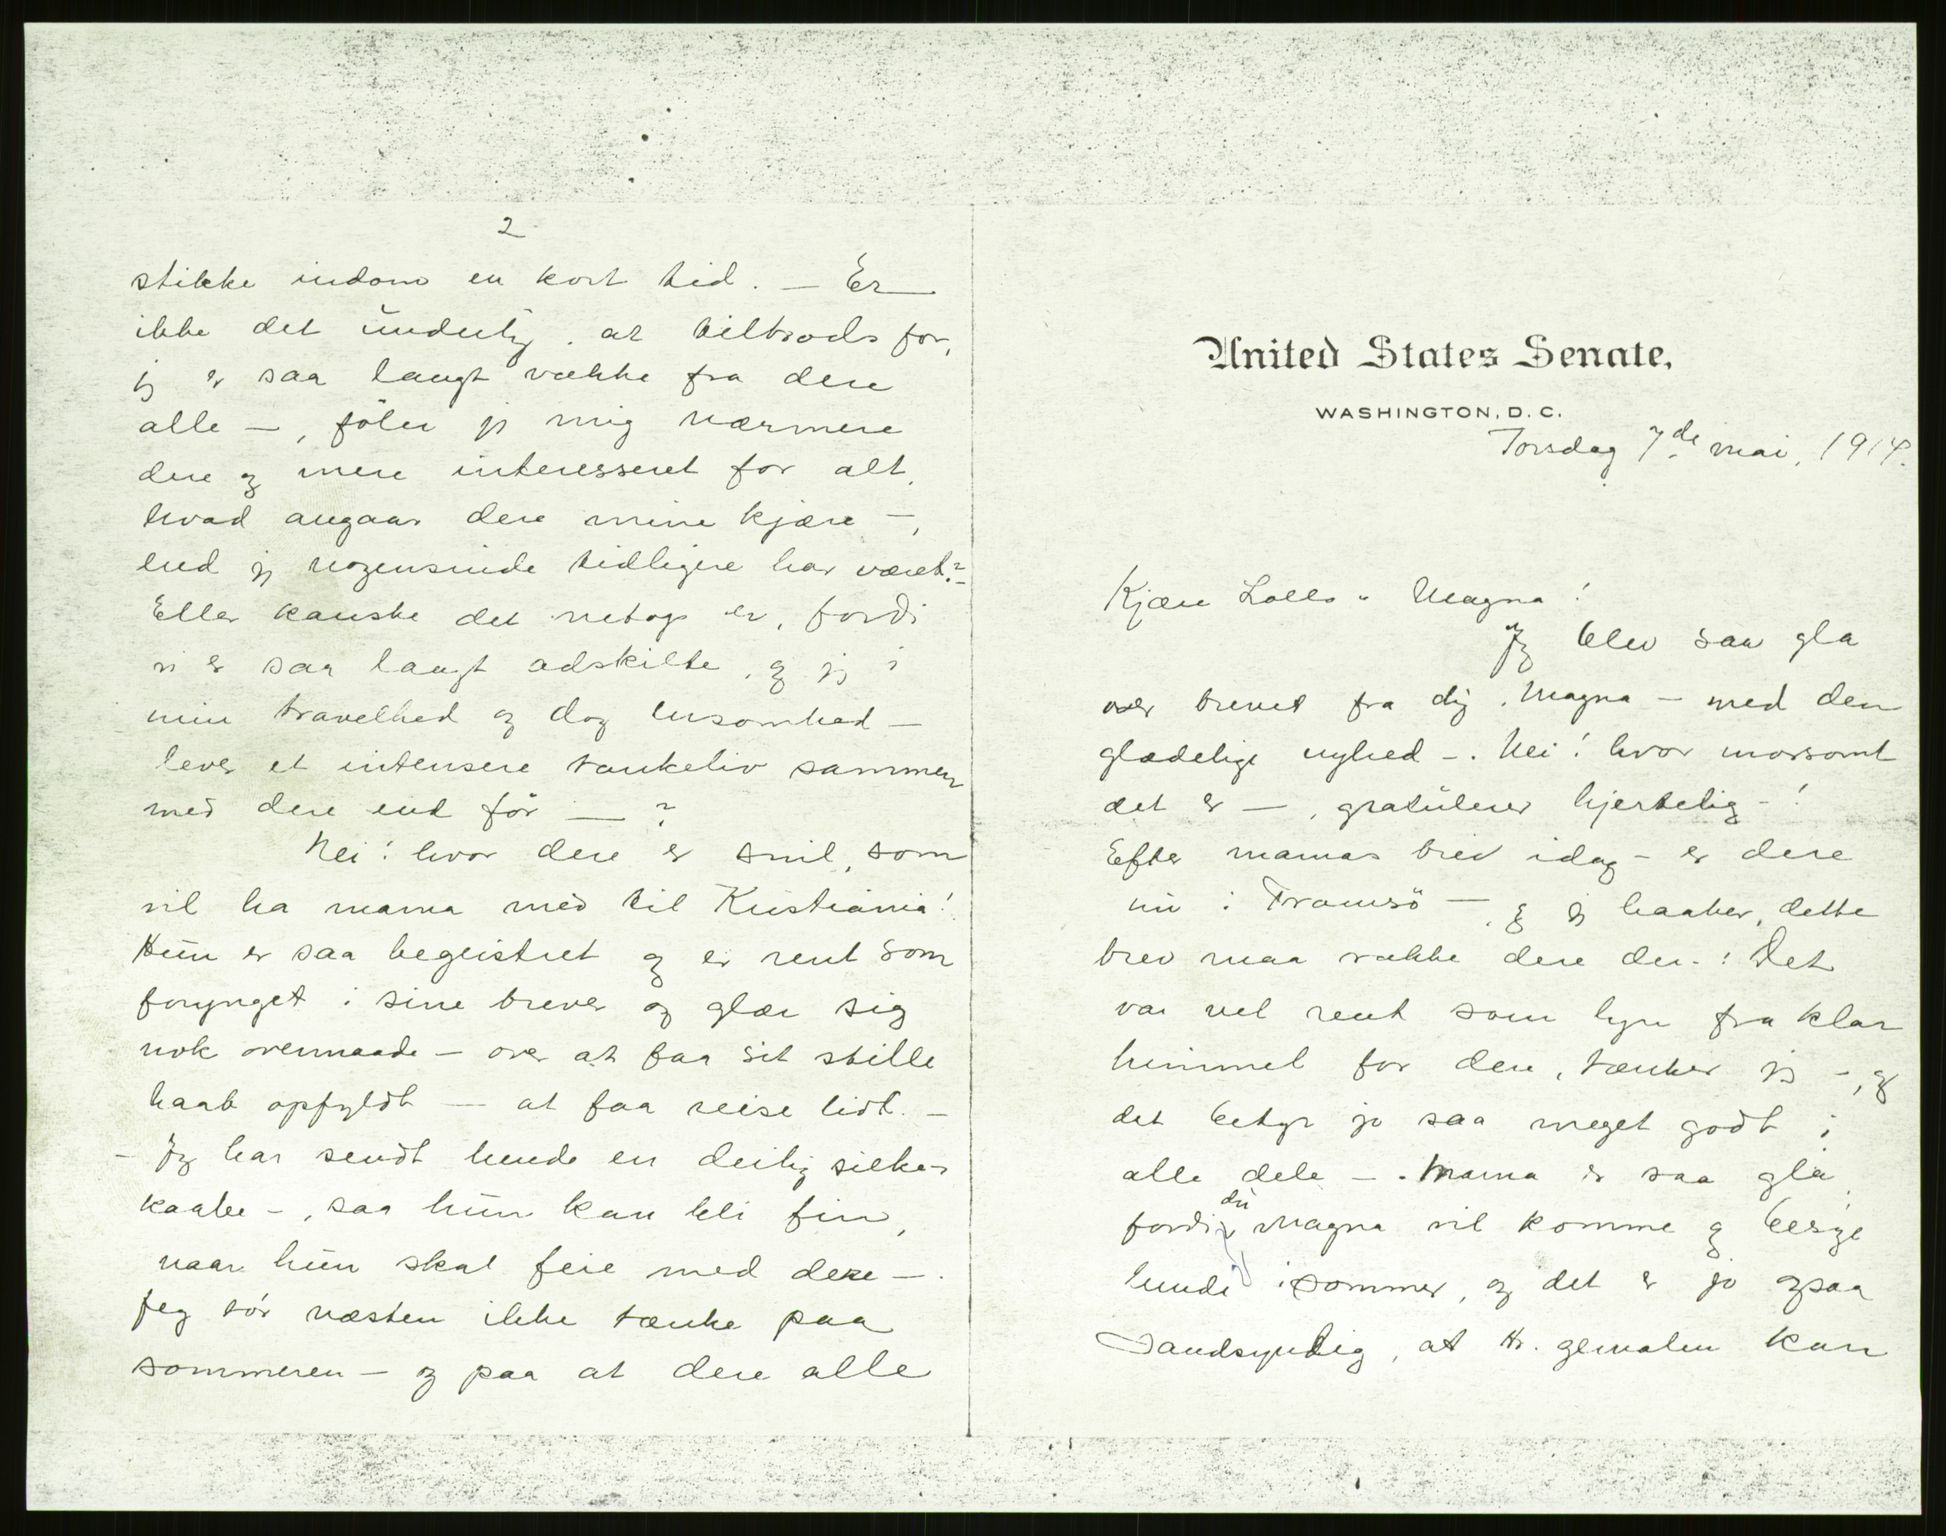 United States Senate,
WASHINGTON, D. C.
Torsdag 7de mai, 1914.
Kjære Lolls " Magna!
Jeg blev saa gla
over brevet fra dig, Magna – med den
glædelige nyhed –. Nei! hvor morsomt
det er –, gratulerer hjertelig –!
Efter mamas brev idag – er dere
nu i Tromsö –, og jeg haaber, dette
brev maa række dere der.! Det
var vel rent som lyn fra klar
himmel for dere, tænker jeg –, og
det betyr jo saa meget godt i
alle dele –. Mama er saa gla,
fordi du Magna vil komme og besøge
hende isommer, og det er jo ogsaa
sandsynlig, at Hr. gemalen kan
2
stikke indom en kort tid. – Er
ikke det underlig, at tiltrods for,
jeg er saa langt vække fra dere
alle –, föler jeg mig nærmere
dere og mere interesseret for alt,
hvad angaar dere mine kjære –,
end jeg nogensinde tidligere har været?–
Eller kanske det netop er, fordi
vi er saa langt adskilte, og jeg i
min travelhed og dog ensomhed –
lever et intensere tankeliv sammen
med dere end för –?
Nei! hvor dere er snil, som
vil ha mama med til Kristiania!
Hun er saa begeistret og er rent som
forynget i sine brever og glær sig
nok overmaade – over at faa sit stille
haab opfyldt – at faa reise lidt. –
– Jeg har sendt hende en deilig silke-
kaabe –, saa hun kan bli fin,
naar hun skal feie med dere –.
Jeg tör næsten ikke tænke paa
sommeren – og paa at dere alle